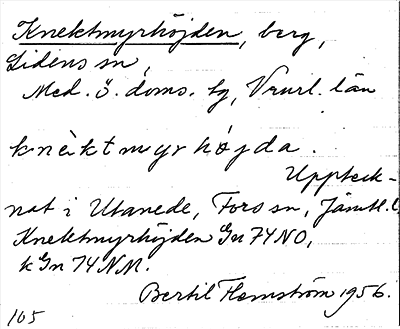 Knektmyrhöjden, berg,
Lidens sn,
Med. ö. doms. tg, Vnurl. län
knèktmyrhøjda.
Uppteck-
nat i Utanede, Fors sn, Jämtl. l.
Knektmyrhöjden Gn 74NO,
k Gn 74NM.
Bertil Flemström 1956.
105